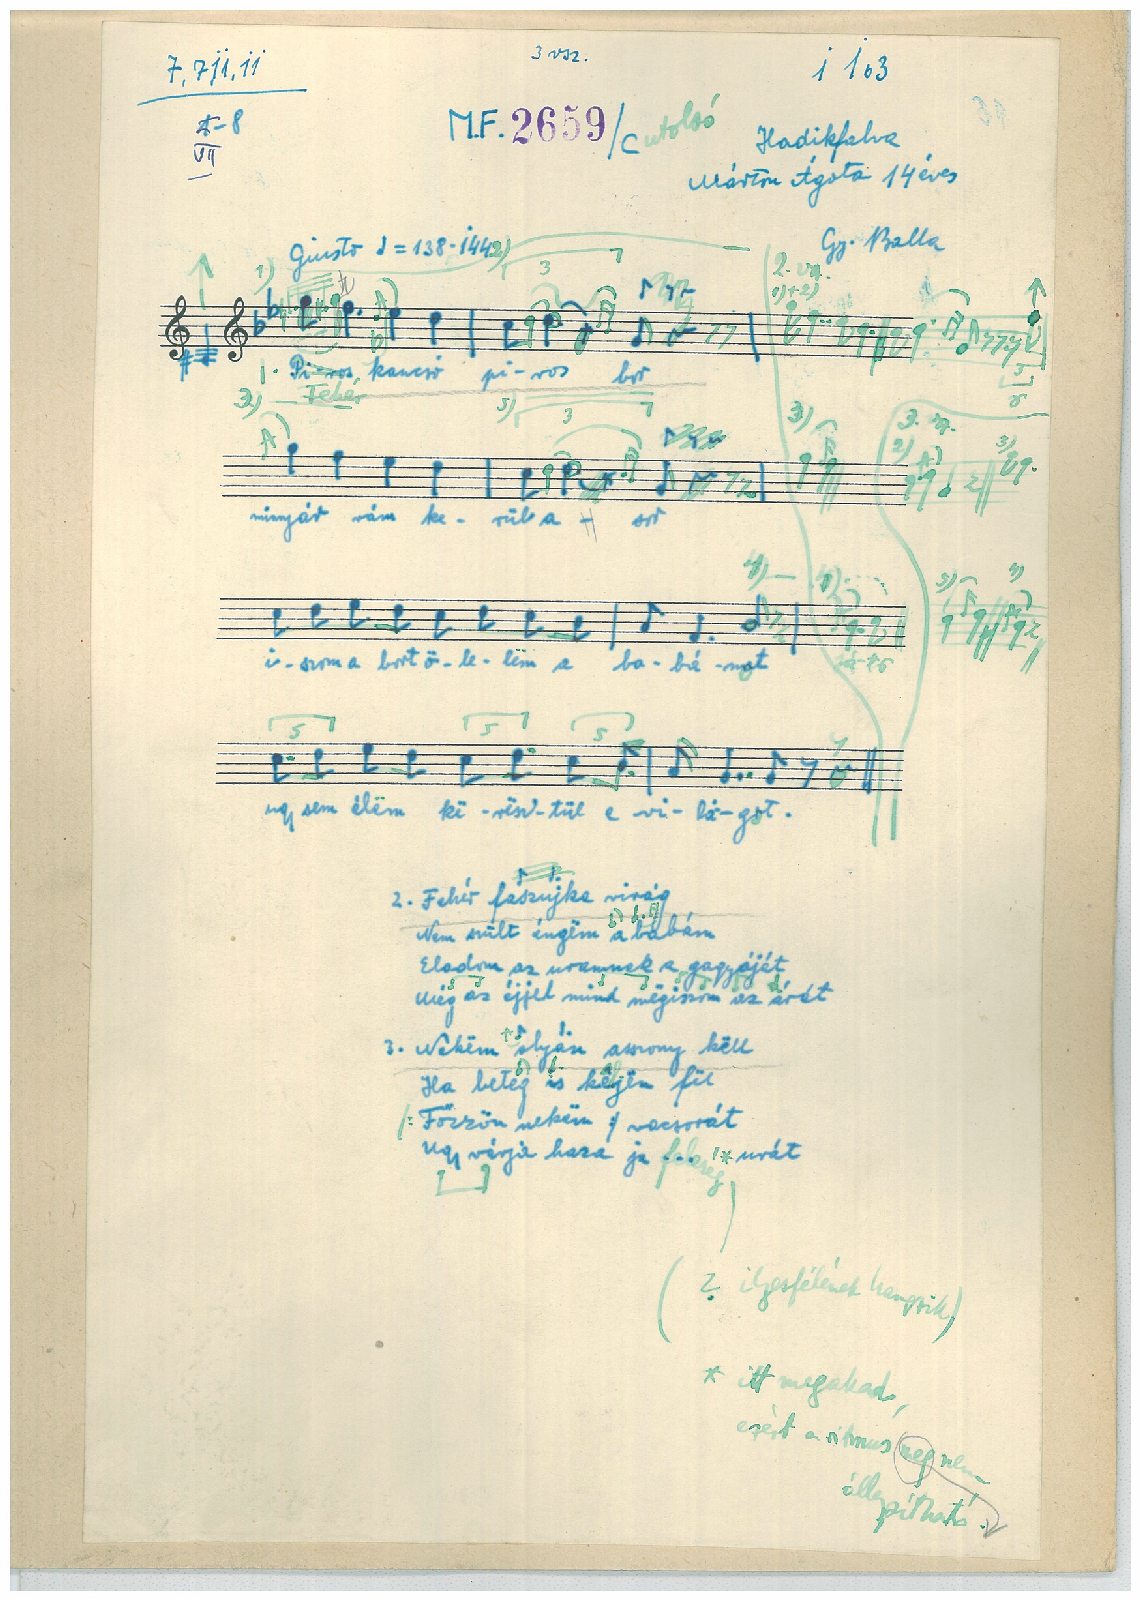 7, 7 ji, ii
3 vsz.
i 103
VII
M.F. 2659/c utolsó
Hadikfalva
Márton Ágota 14 éves
Giusto = 138-144
Gy. Balla
1. Pi-ros kancsó pi-ros bor
Fehér
minnyár rám ke-rül a sor
i-szom a bort ö-le-lëm a ba-bá-mot
ugy sem élëm ké-rësz-tül e vi-lá-got.
2. Fehér fászujka virág
Nem szült éngëm a babám
Eladom az uramnak a gagyáját
Még az éjjel mind mëgiszom az árát
3. Nékëm olyan asszony këll
Ha beteg is këljën fël
Főzzön nekëm vacsorát
Ugy várja haza ja ... feleség * urát
(? ilyesfélének hangzik)
* itt megakad,
ezért a ritmus meg nem
állapítható.